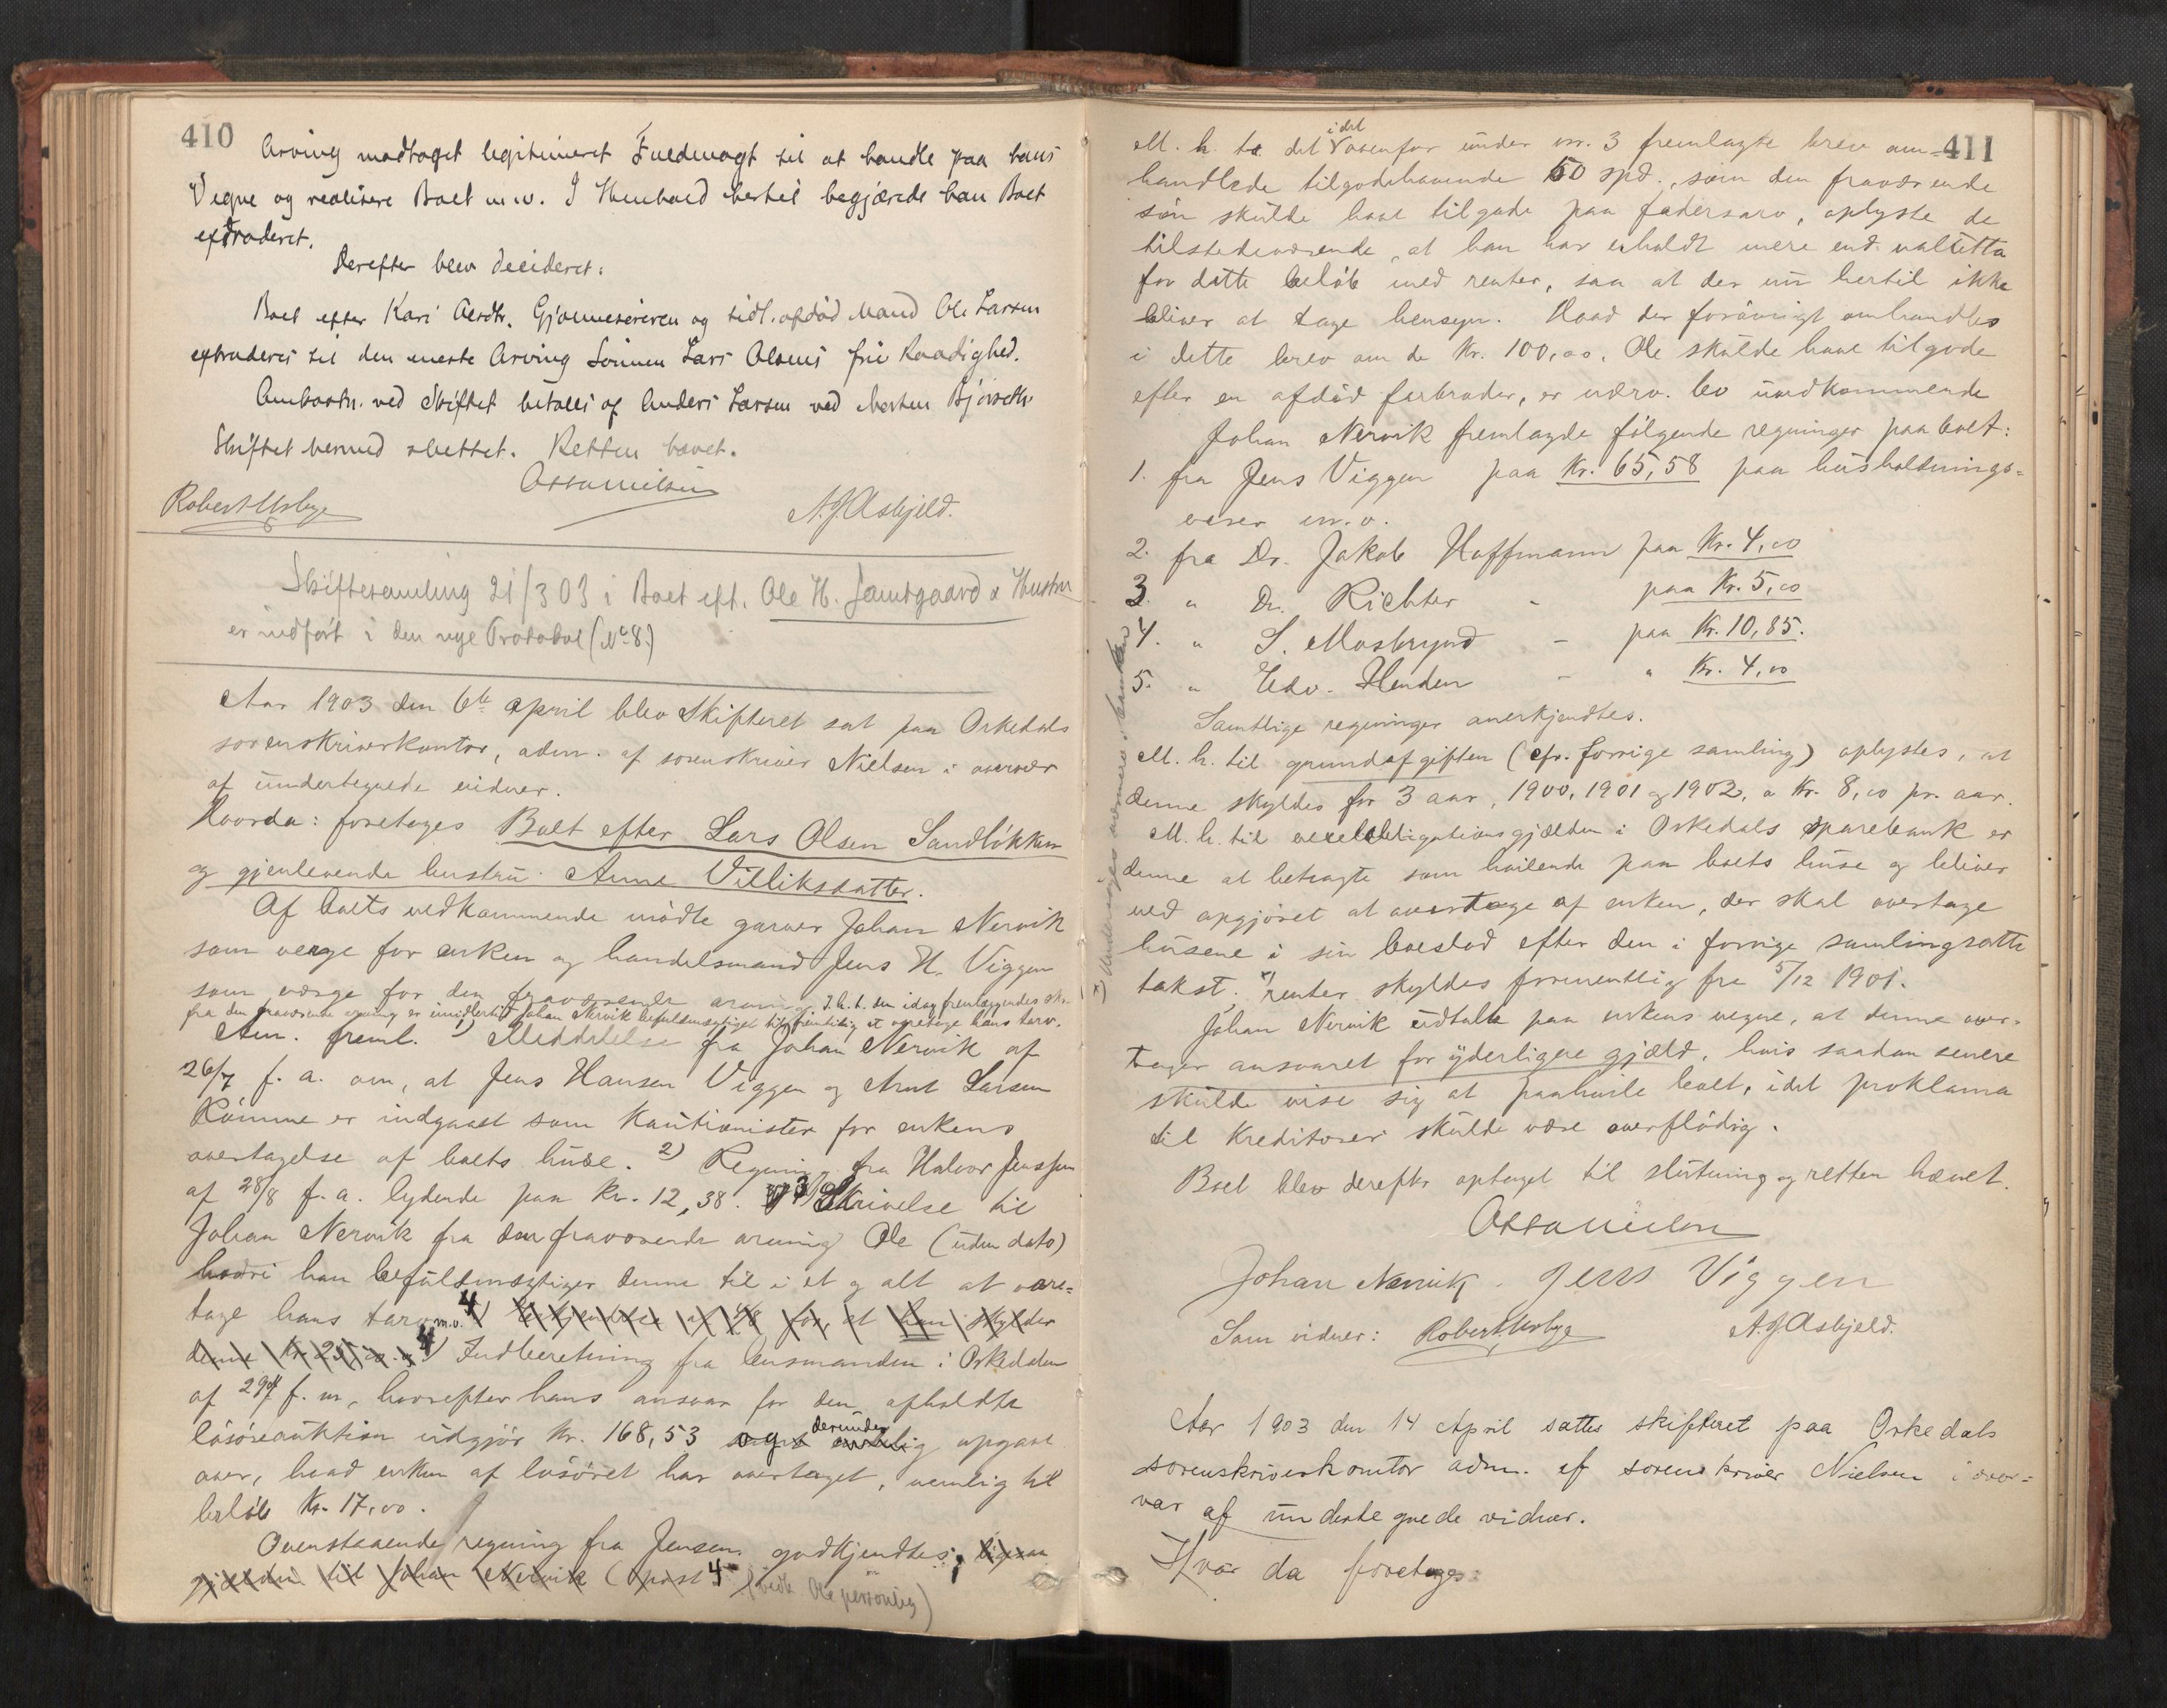 410
Arving modtaget legitimeret Fuldmagt til at handle paa hans
Vegne og realisere Boet m.v. I Henhold hertil begjærede han Boet
extraderet.
Derefter blev decideret:
Boet efter Kari Gjønnesøreren og tidl. afdød Mand Ole Larsen
extraderes til den eneste Arving Sønnen Lars Olsens frie Raadighed.
ved Skiftet betales af Anders Larsen ved Morten
Skiftet hermed sluttet. Retten hævet.
Robert Usbye A.J. Asbjeld.
Skiftesamling 21/3 03 i Boet eft. Ole H. Jamtgaard & Hustru
er indført i den nye Protokol (No 8.)
Aar 1903 den 6te april blev Skifteret sat paa Orkedals
sorenskriverkontor, adm. af sorenskriver Nielsen i overvær
af undertegnede vidner.
Hvorda: foretoges Boet efter Lars Olsen Sandløkken
og gjenlevende hustru Anne Villiksdatter.
Af boets vedkommende mødte garver Johan Nervik
som verge for enken og handelsmand Jens H. Viggen
som værge for den fraværende arving. I h. t. den idag fremlæggendes skr.
fra den fraværende arving er imidlertid Johan Nervik befuldmægtiget til fremtidig at varetage hans tarv.
Adm. freml. 1) Meddelelse fra Johan Nervik af
26/7 f. a. om, at Jens Hansen Viggen og Arnt Larsen
Rømme er indgaaet som kautionister for enkens
overtagelse af boets huse. 2) Regning fra Halvor Jenssen
af 28/8 f. a. lydende paa kr. 12,38. 3) Skrivelse til
Johan Nervik fra den fraværende arving Ole (uden dato)
hvori han befuldmægtiger denne til i et og alt at vare=
tage hans tarv m.v. 4) af for, at han skylder
denne kr. 25,00. 4) Indberetning fra lensmanden i Orkedalen
af f. m., hvorefter hans ansvar for den afholdte
løsøreauktion udgjør Kr. 168,53 og derunder opgave
over, hvad enken af løsøret har overtaget, nemlig til
beløb Kr. 17,00.
Ovenstaaende regning fra Jensen godkjendtes, ligesaa
gjælden til Johan Nervik (post 4 (vedk. Ole personlig)
411
M. h. t. det i det ovenfor under nr. 3 fremlagte brev om=
handlede tilgodehavende 50 spd., som den fraværende
søn skulde have tilgode paa fædrearv, oplyste de
tilstedeværende, at han har erholdt mere end valuta
for dette beløb med renter, saa at der nu hertil ikke
bliver at tage hensyn. Hvad der forøvrigt omhandles
i dette brev om de Kr. 100,00, Ole skulde have tilgode
efter en afdød farbroder, er nærv. bo uvedkommende
Johan Nervik fremlagde følgende regninger paa boet:
1. fra Jens Viggen paa Kr. 65,58 paa husholdnings=
varer m.v.
2. fra Dr. Jakob Hoffmann paa Kr. 4,00
3. " Dr. Richter - paa Kr. 5,00
4. " S. Mosbrynd - paa Kr. 10,85.
5. " Edv. Henden - " Kr. 4,00
Samtlige regninger anerkjendtes.
M. h. til grundafgiften (cfr. forrige samling) oplystes, at
denne skyldes for 3 aar, 1900, 1901 og 1902, a Kr. 8,00 pr. aar.
M. h. til vexelobligationsgjælden i Orkedals sparebank er
denne at betragte som hvilende paa boets huse og bliver
ved opgjøret at overtage af enken, der skal overtage
husene i sin boeslod efter den i forrige samling satte
takst. x) renter skyldes formentlig fra 5/12 1901.
x) Undersøges nærmere i banken
Johan Nervik udtalte paa enkens vegne, at denne over=
tager ansvaret for yderligere gjæld, hvis saadan senere
skulde vise sig at paahvile boet, idet proklama
til kreditorer skulde være overflødig.
Boet blev derefter optaget til slutning og retten hævet.
Johan Nervik. Jens Viggen
Som vidner: Robert Usbye A.J. Asbjeld.
Aar 1903 den 14 April sattes skifteret paa Orkedals
sorenskriverkontor adm. af sorenskriver Nielsen i over=
vær af undertegnede vidner.
Hvor da foretoges: